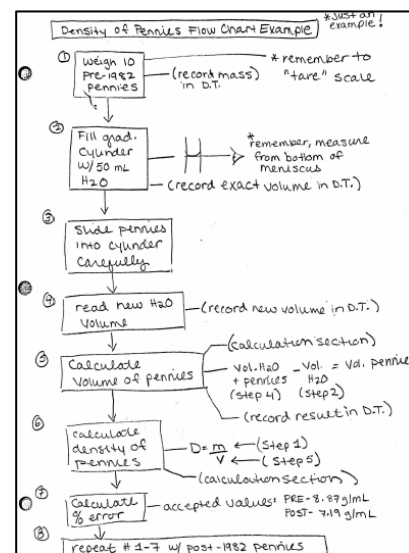 Density of Pennies Flow Chart Example
*Just an example!
① Weigh 10 Pre-1982 pennies
(record mass) in D.T.
*remember to "tare" scale
② Fill grad. Cylinder w/50 mL H2O
*remember, measure from bottom of meniscus
(record exact volume in D.T.)
③ Slide pennies into cylinder carefully
④ read new H2O volume
(record new volume in D.T.)
⑤ Calculate volume of pennies
(calculation section)
Vol. H2O + pennies (step 4) - Vol. H2O (step 2) = Vol. pennie
(record result in D.T.)
⑥ calculate density of pennies
D = m/V ← (Step 1) ← (Step 5)
(calculation section)
⑦ Calculate % error
accepted values: PRE- 8.87g/mL
POST- 7.19 g/mL
⑧ repeat #1-7 w/ post-1982 pennies